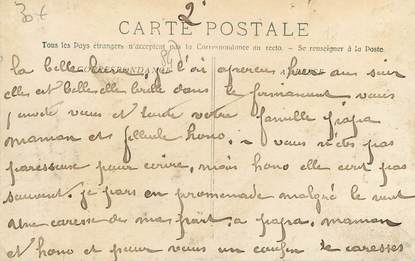 30f
2
CARTE POSTALE
Tous les Pays étrangers n'acceptent pas la Correspondance au recto. – Se renseigner à la Poste.
CORRESPONDANCE
la belle je l'ai apercu hier au soir
elle est belle elle brille dans le firmament vous
et toute votre famille papa
maman et hono. vous n'etes pas
paresseuse pour ecrire, mais hono elle ecrit pas
souvent. je pars en promenade malgré le vent
une caresse de ma part, a papa, maman
et hono et pour vous un de caresses